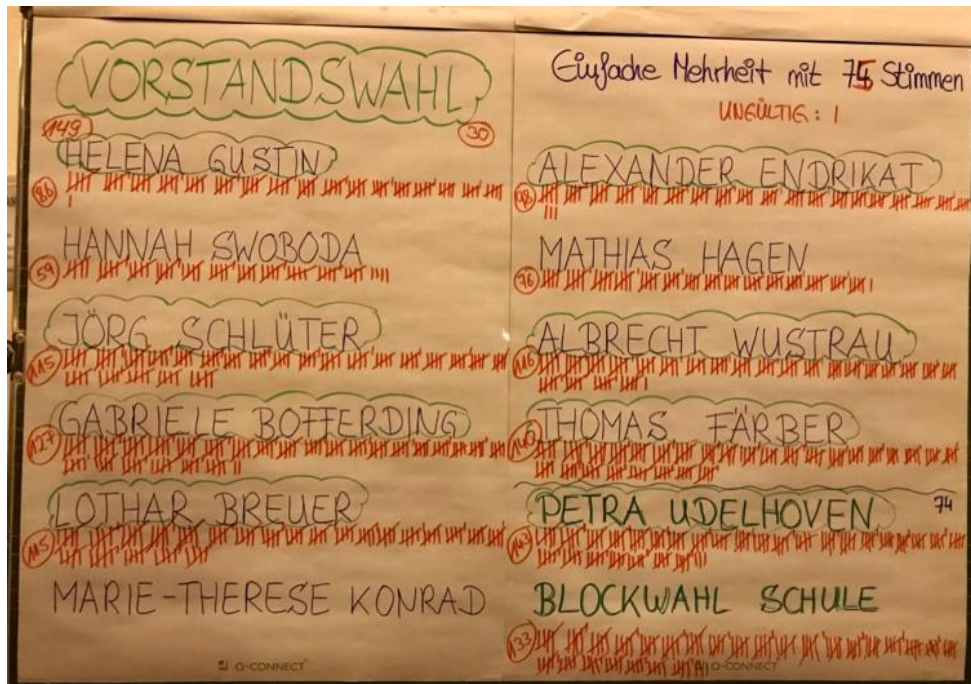 VORSTANDSWAHL
149
30
HELENA GUSTIN
86
HANNAH SWOBODA
59
JÖRG SCHLÜTER
115
GABRIELE BOFFERDING
127
LOTHAR BREUER
115
MARIE-THERESE KONRAD
Q-CONNECT
Einfache Mehrheit mit 75 Stimmen
UNGÜLTIG: 1
ALEXANDER ENDRIKAT
98
MATHIAS HAGEN
76
ALBRECHT WUSTRAU
116
THOMAS FÄRBER
140
PETRA UDELHOVEN
74
143
BLOCKWAHL SCHULE
133
Q-CONNECT